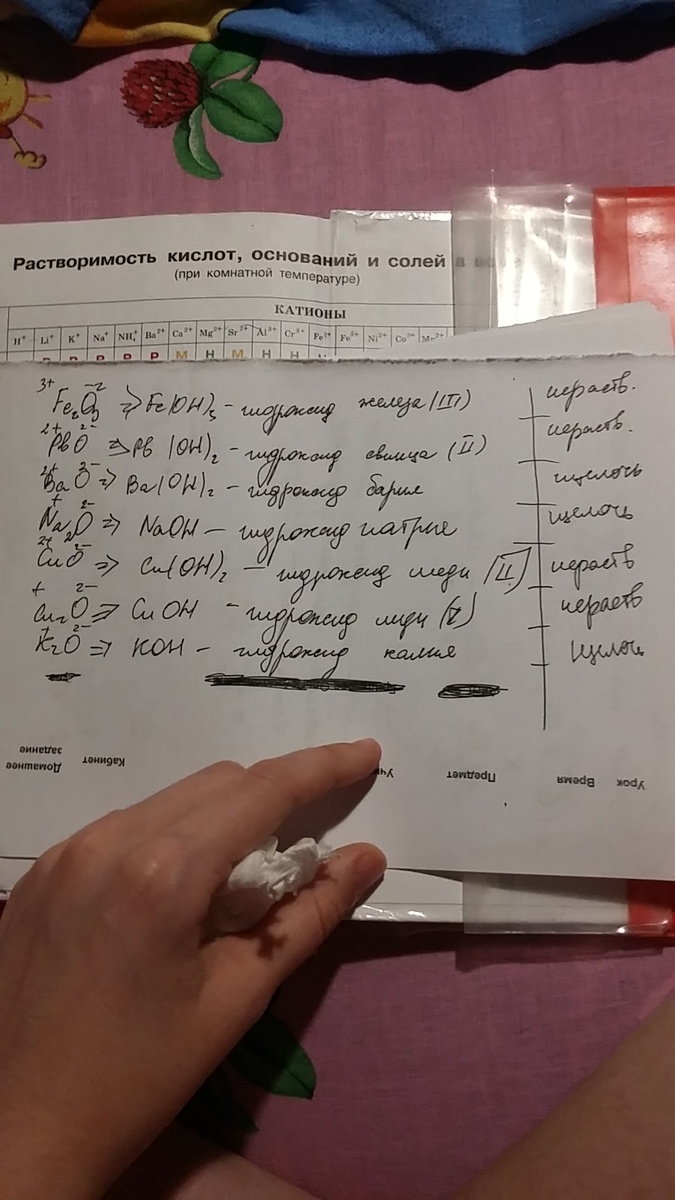 Растворимость кислот, оснований и солей в воде
(при комнатной температуре)
КАТИОНЫ
H⁺ Li⁺ K⁺ Na⁺ NH₄⁺ Ba²⁺ Ca²⁺ Mg²⁺ Sr²⁺ Al³⁺ Cr³⁺ Fe²⁺ Fe³⁺ Ni²⁺ Co²⁺ Mn²⁺
Р Р Р Р М Н М Н Н
3+ -2
Fe₂O₃ => Fe(OH)₃ - гидроксид железа (III) нераств.
2+ 2-
PbO => Pb(OH)₂ - гидроксид свинца (II) нераств.
2+ 2-
BaO => Ba(OH)₂ - гидроксид бария щелочь
+ 2-
Na₂O => NaOH - гидроксид натрия щелочь
2+ 2-
CuO => Cu(OH)₂ - гидроксид меди (II) нераств
+ 2-
Cu₂O => CuOH - гидроксид меди (I) нераств
+ 2-
K₂O => KOH - гидроксид калия щелочь
Урок Время Предмет Кабинет Домашнее
задание